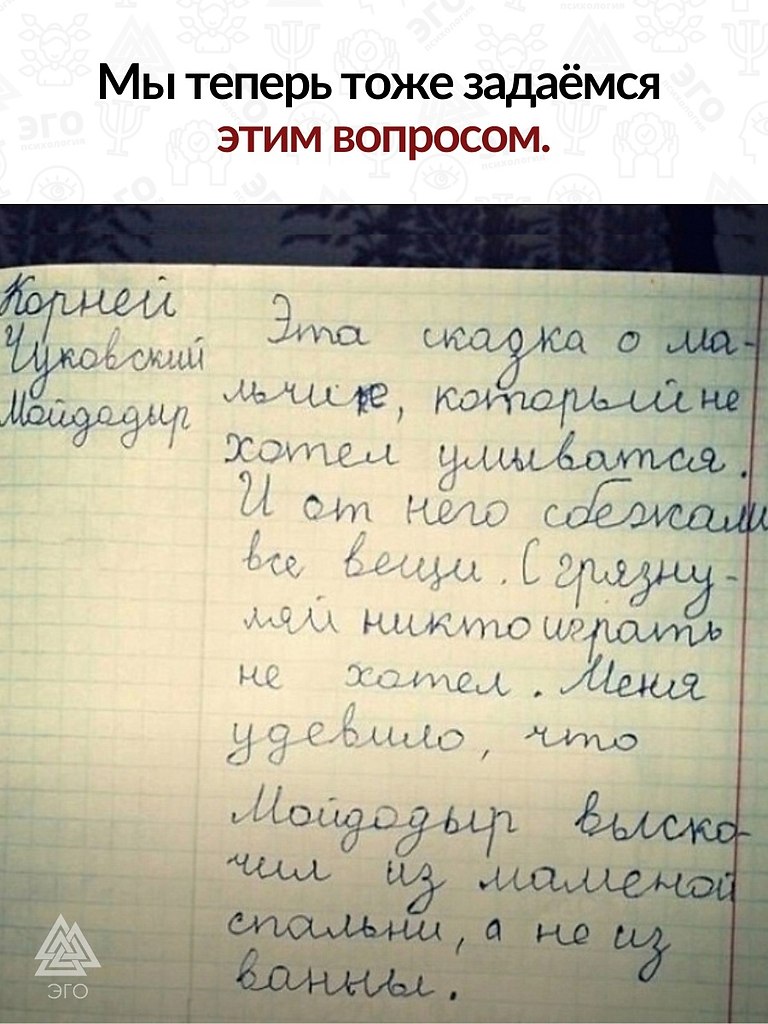 Мы теперь тоже задаёмся
этим вопросом.
Корней
Чуковский
Мойдодыр
Эта сказка о ма-
льчике, который не
хотел умыватся.
И от него сбежали
все вещи. С грязну-
лей никто играть
не хотел. Меня
удевило, что
Мойдодыр выско-
чил из маменой
спальни, а не из
ванны.
ЭГО